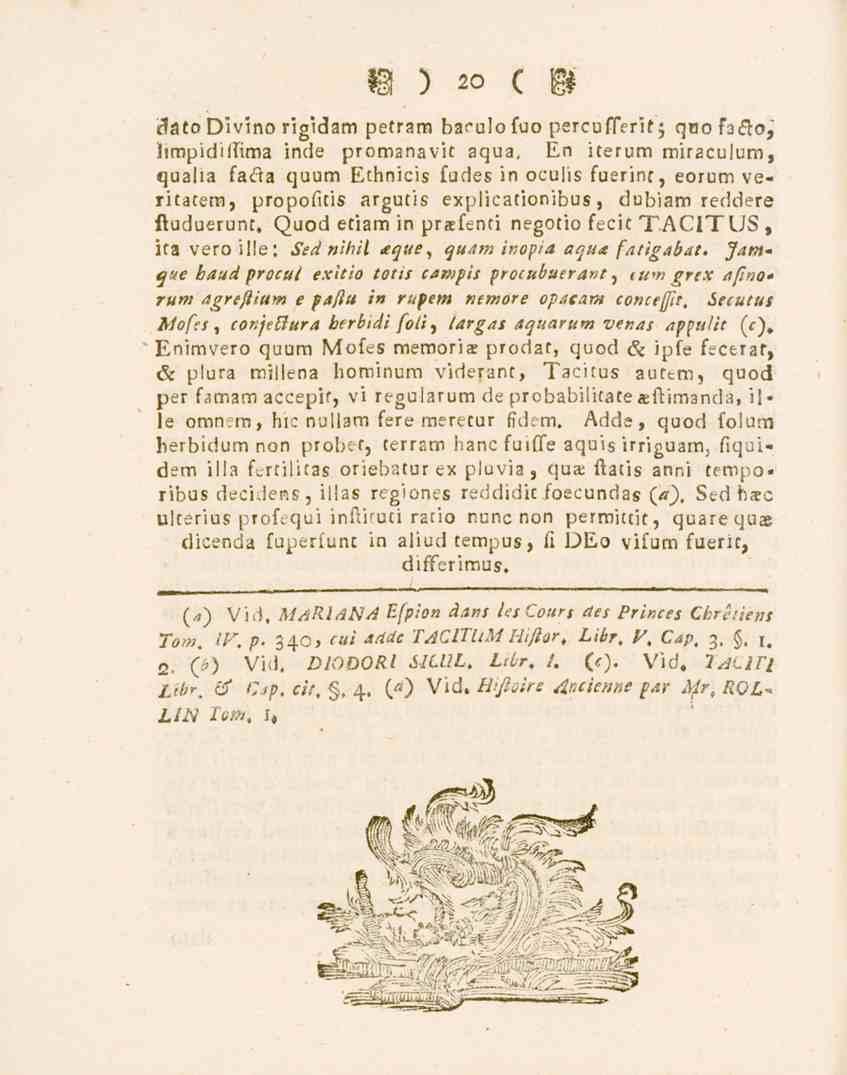 ) 20 (
dato Divino rigidam petram baculo suo percusserit; quo facto,
limpidissima inde promanavit aqua. En iterum miraculum,
qualia facta quum Ethnicis sudes in oculis fuerint, eorum ve-
ritatem, propositis argutis explicationibus, dubiam reddere
studuerunt. Quod etiam in præsenti negotio fecit TACITUS,
ita vero ille: Sed nihil æque, quam inopia aquæ fatigabat. Jam-
que haud procul exitio totis campis procubuerant, cum grex asino-
rum agrestium e pastu in rupem nemore opacam concessit. Secutus
Moses, conjectura herbidi soli, largas aquarum venas appulit (c).
Enimvero quum Moses memoriæ prodat, quod & ipse fecerat,
& plura millena hominum viderant, Tacitus autem, quod
per famam accepit, vi regularum de probabilitate æstimanda, il-
le omnem, hic nullam fere meretur fidem. Adde, quod solum
herbidum non probet, terram hanc fuisse aquis irriguam, siqui-
dem illa fertilitas oriebatur ex pluvia, quæ statis anni tempo-
ribus decidens, illas regiones reddidit foecundas (a). Sed hæc
ulterius prosequi instituti ratio nunc non permittit, quare quæ
dicenda supersunt in aliud tempus, si DEo visum fuerit,
differimus.
(a) Vid. MARIANA Espion dans les Cours des Princes Chrêtiens
Tom. IV. p. 340, cui adde TACITUM Histor. Libr. V. Cap. 3. §. 1.
2. (b) Vid. DIODORI SICUL. Libr. I. (c). Vid. TACITI
Libr. & Cap. cit. §. 4. (a) Vid. Histoire Ancienne par Mr. ROL-
LIN Tom. 1.